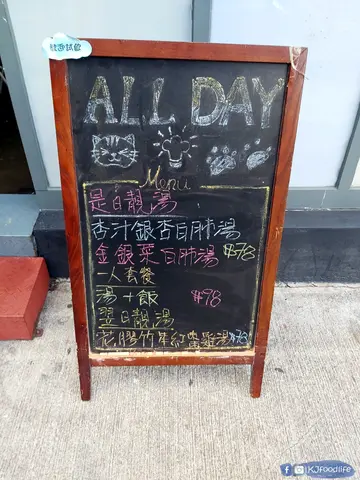 歡迎試飲
ALL DAY
Menu
是日靚湯
杏汁銀杏白肺湯
金銀菜白肺湯 $78
一人套餐
湯+飯 $98
翌日靚湯
花膠竹笙紅棗雞湯 $78
KJfoodlife